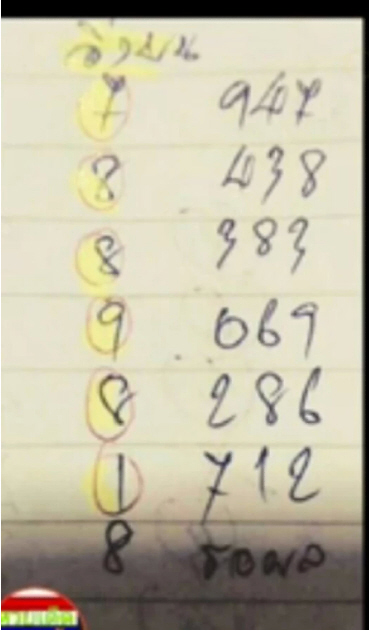 วิ่งบน
7 947
8 438
8 383
9 069
8 286
1 712
8 รอผล